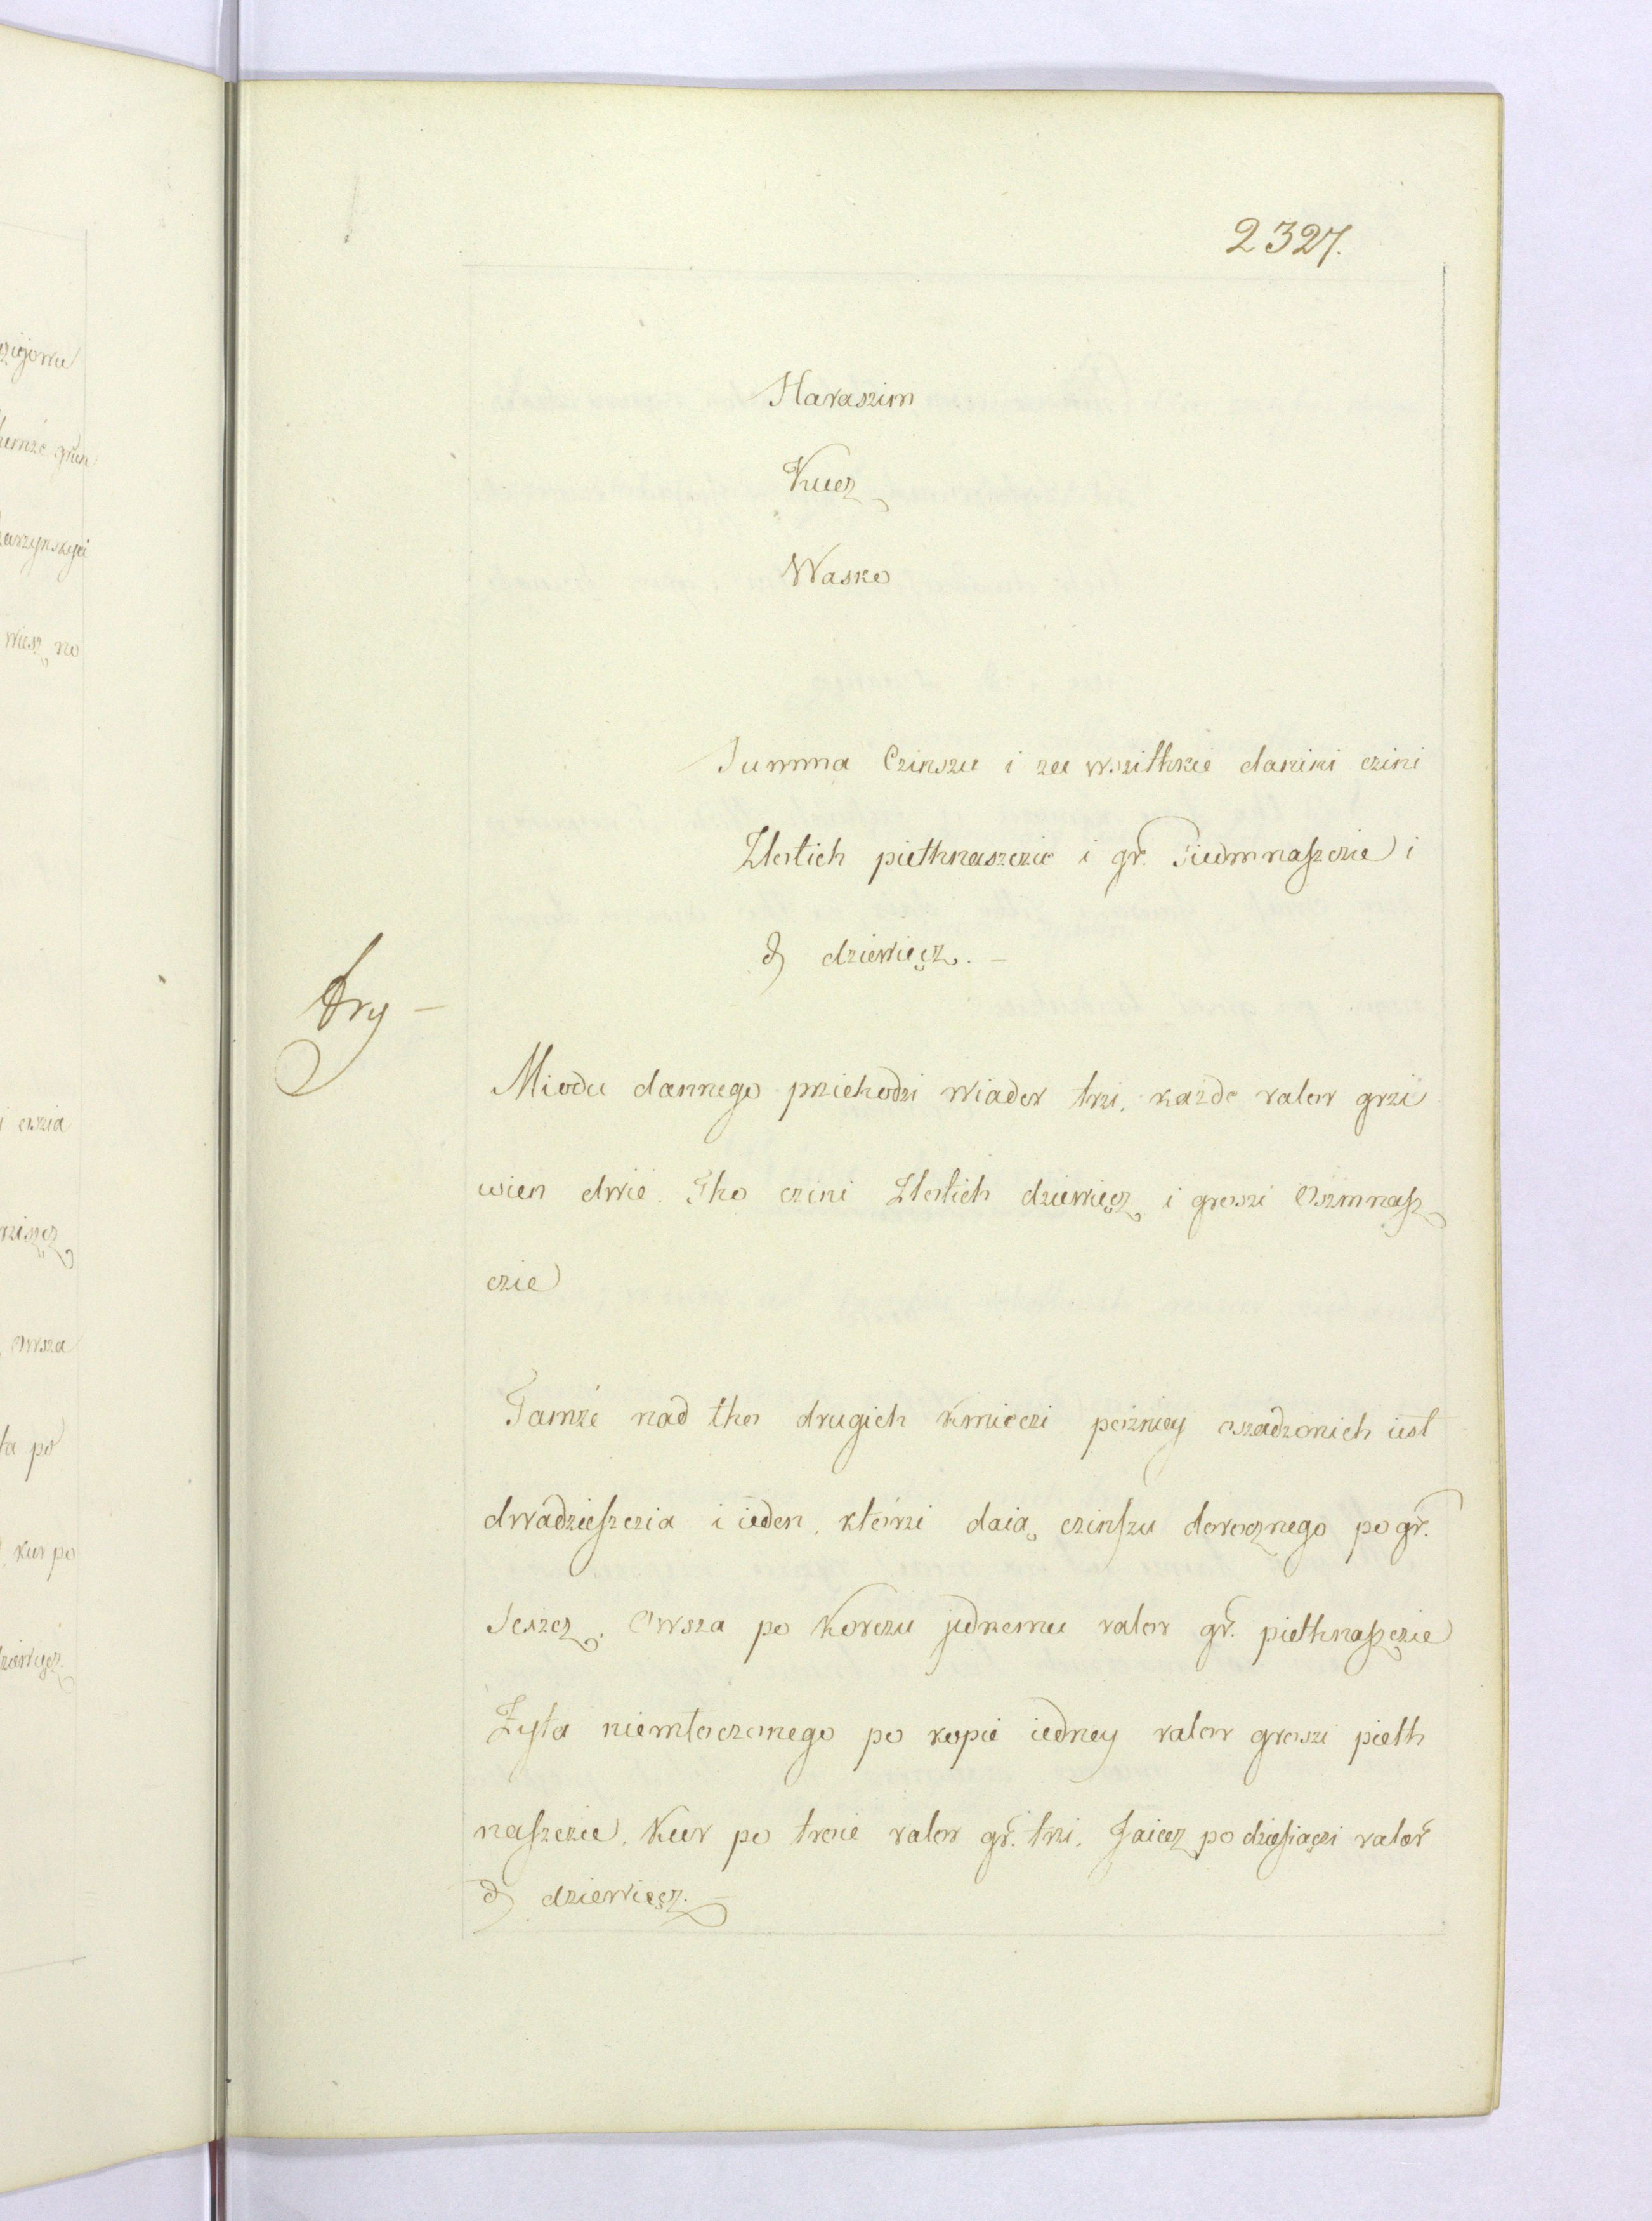 2327.
Haraszim
Kucz
Wasko
Summa Czinszu i za wszithkie daniki czini
Złotich piethnaszczie i gr. Siedmnaszczie i
d dziewięcz. –
Miodu dannego prziehodzi wiader trzi, każde valor grzi
wien dwie. Tho czini Złotich dziewięcz i groszi Oszmnasz
czie
Tamże nad tho drugich kmieczi pożniey oszadzonich iest
dwadzieszczia i ieden, którzi daią czinszu dorocznego po gr.
Seszcz. Owsza po Korczu jednemu valor gr. piethnaszczie
Żyta niemłoczonego po kopie iedney valor groszi pieth
naszczie. Kur po troie valor gr. trzi. Jaiecz po dziesiączi valor
d dziewięcz. –